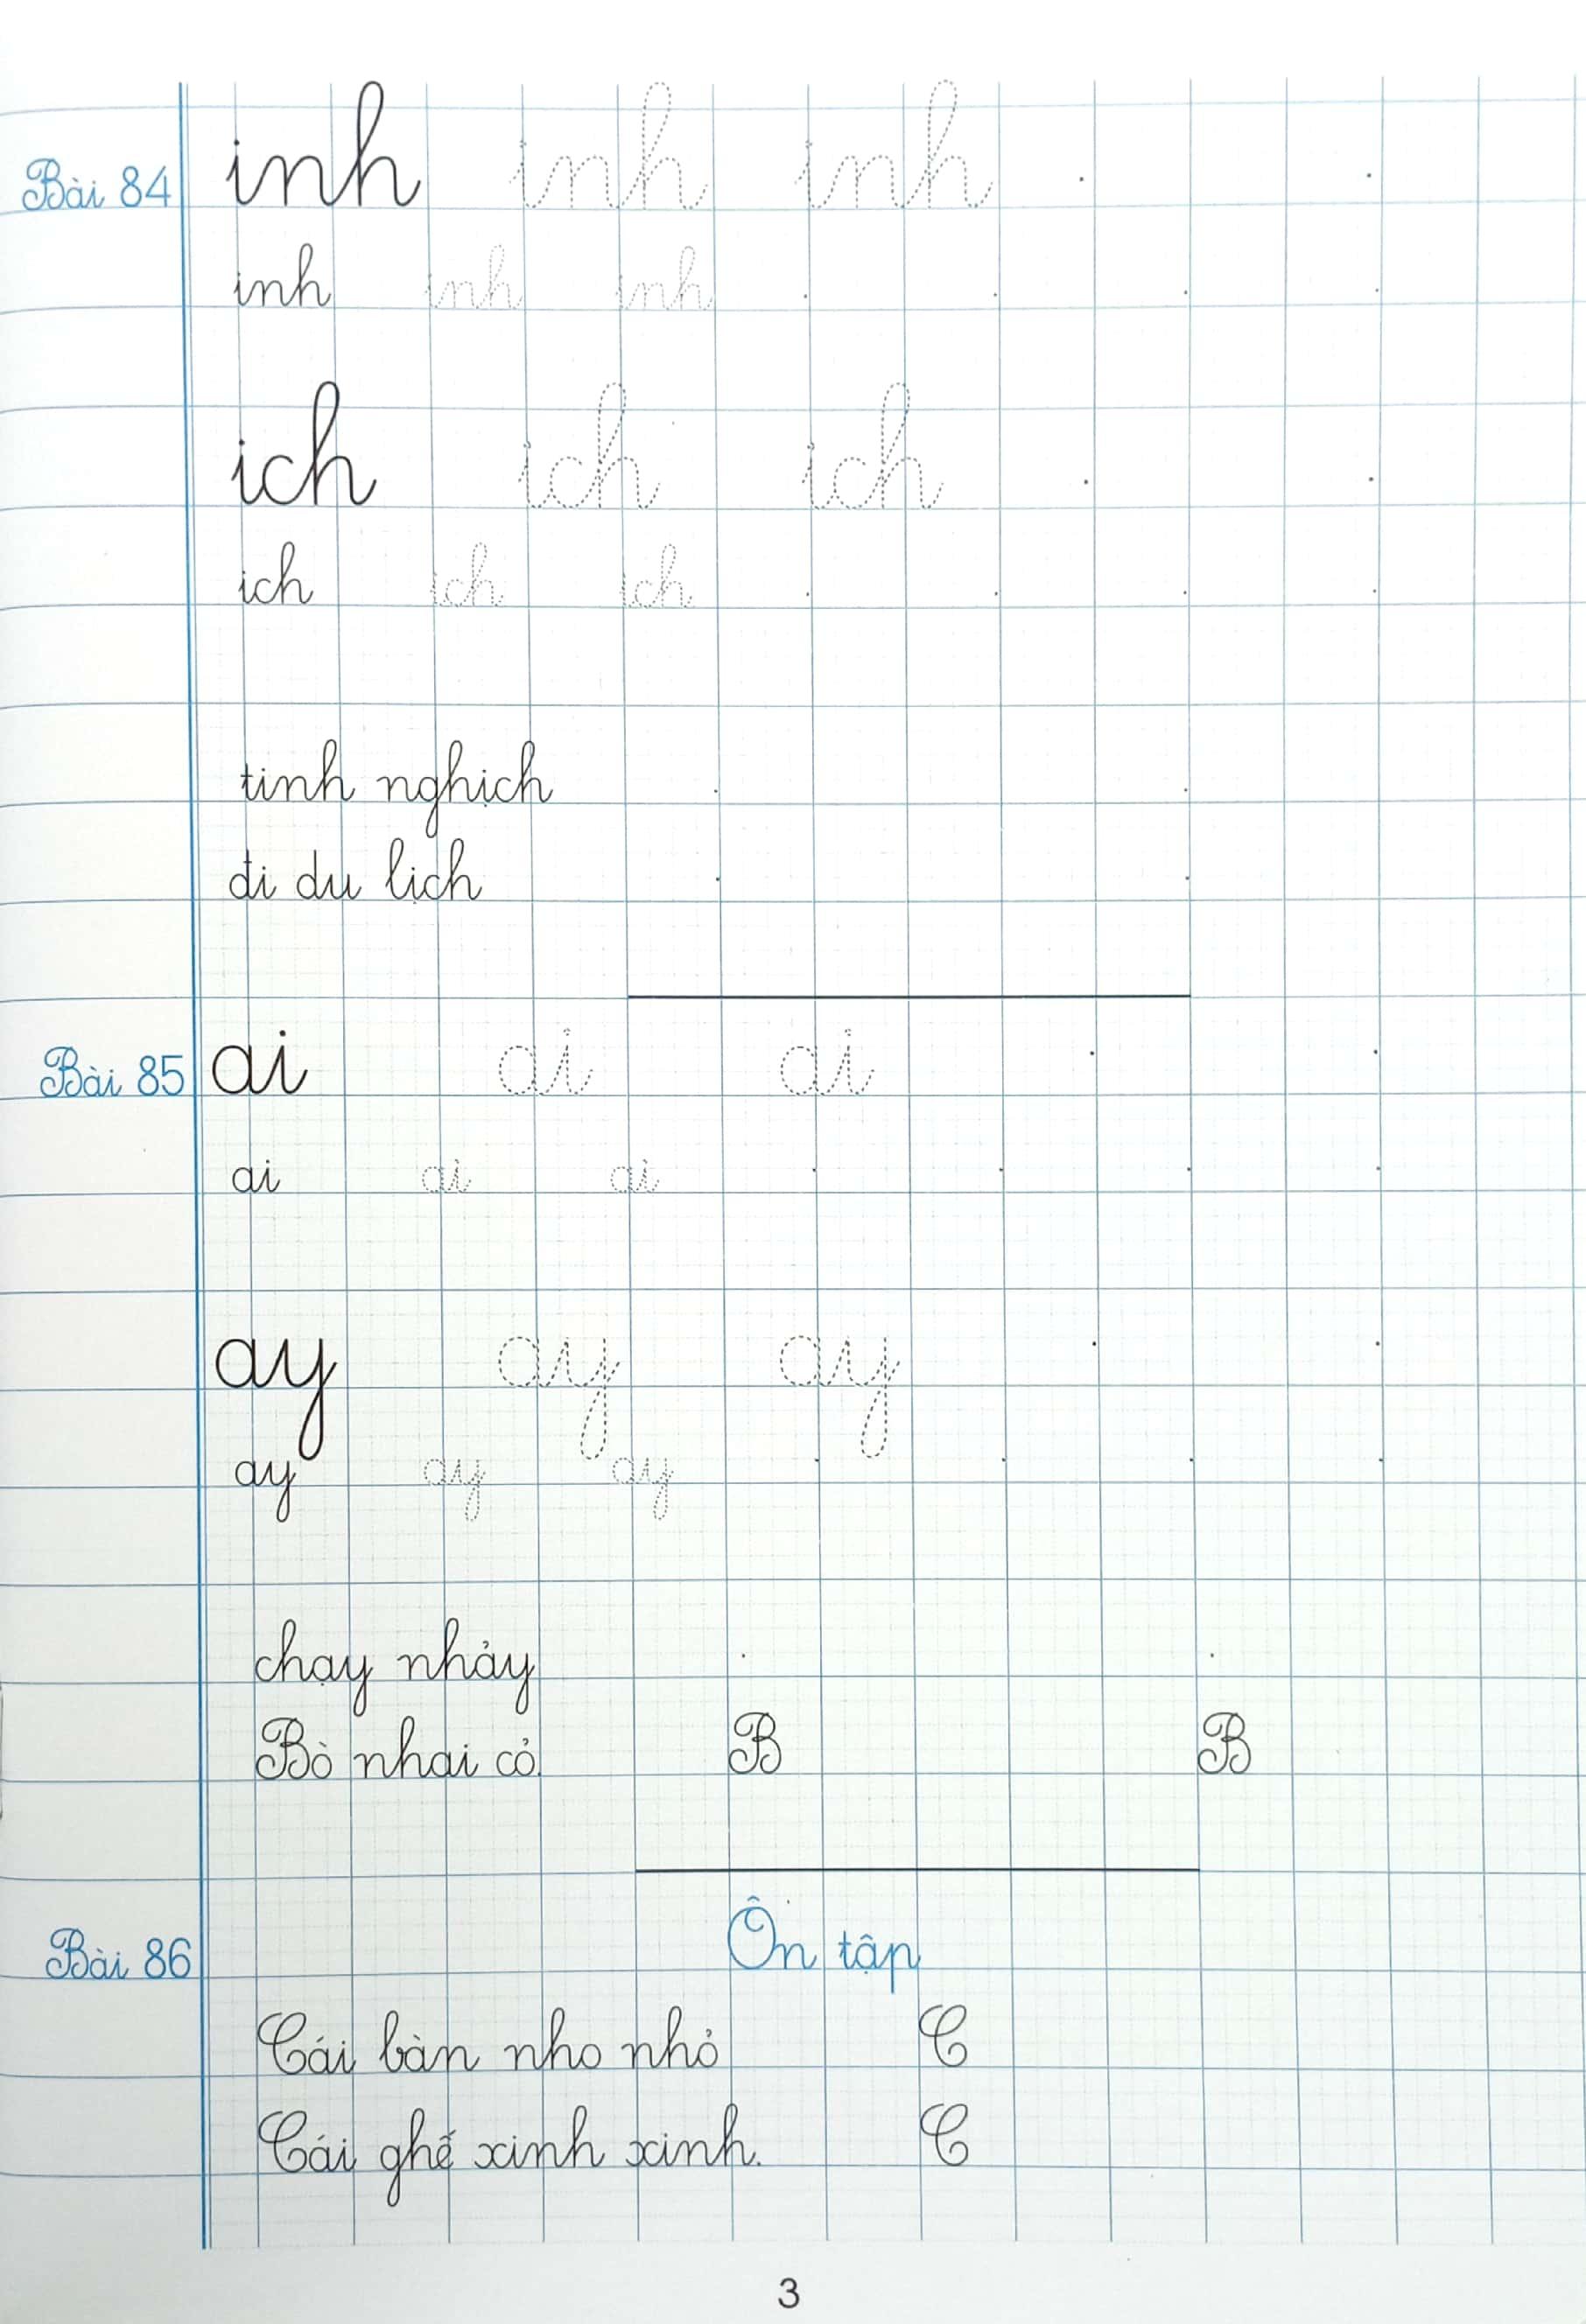 Bài 84 inh inh inh
inh inh inh
ich ich ich
ich ich ich
tinh nghịch
đi du lịch
Bài 85 ai ai ai
ai ai ai
ay ay ay
ay ay ay
chạy nhảy
Bò nhai cỏ. B B
Bài 86 Ôn tập
Cái bàn nho nhỏ C
Cái ghế xinh xinh. C
3